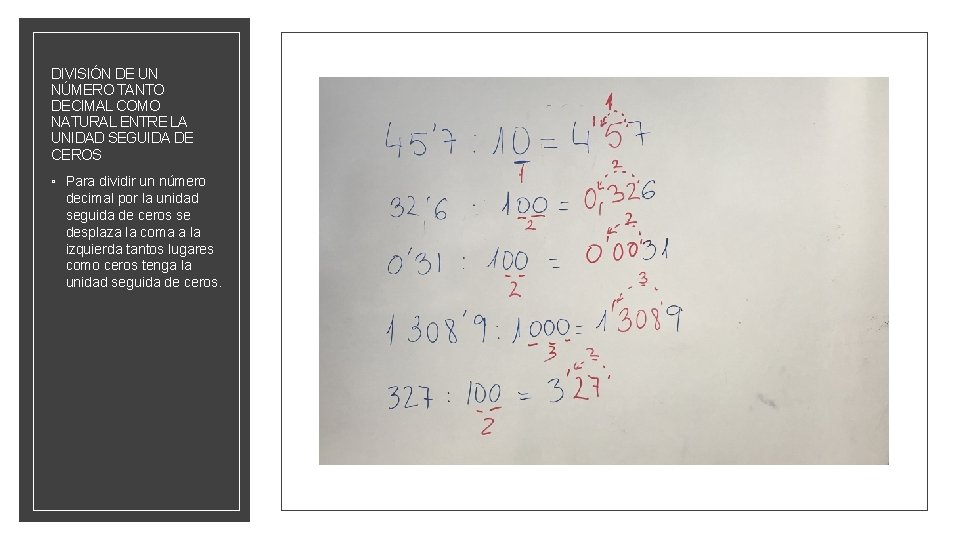 DIVISIÓN DE UN
NÚMERO TANTO
DECIMAL COMO
NATURAL ENTRE LA
UNIDAD SEGUIDA DE
CEROS
▫ Para dividir un número
decimal por la unidad
seguida de ceros se
desplaza la coma a la
izquierda tantos lugares
como ceros tenga la
unidad seguida de ceros.
1
45'7 : 10 = 4'57
1
2
32'6 : 100 = 0,326
2
2
0'31 : 100 = 0'0031
2
3
1308'9 : 1000 = 1'3089
3
2
327 : 100 = 3'27
2